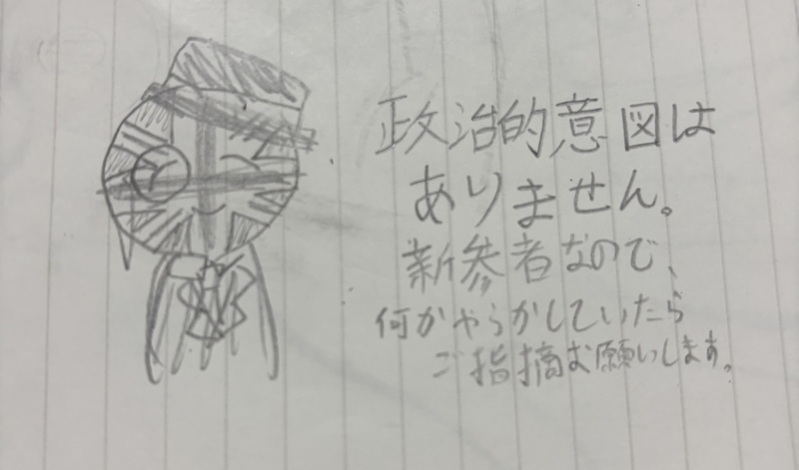 政治的意図は
ありません。
新参者なので、
何かやらかしていたら
ご指摘お願いします。